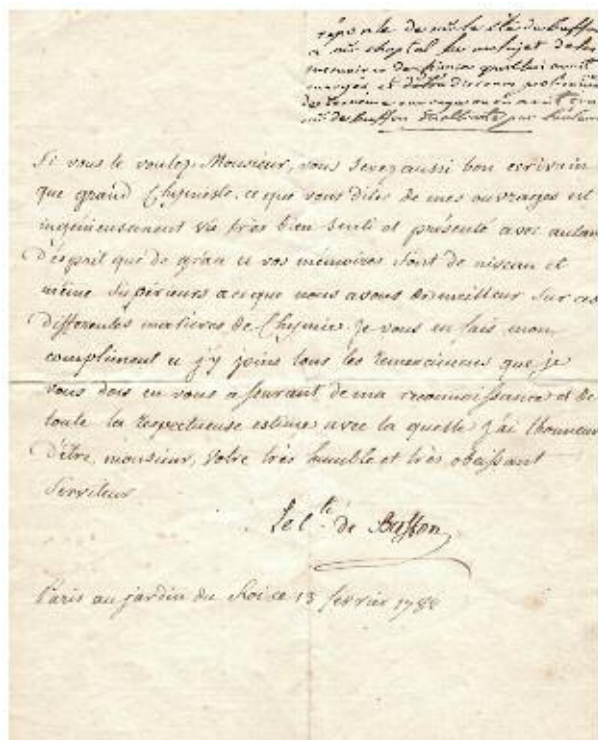 réponse de mr le cte de buffon
a mr chaptal au sujet de les
memoires de
envoyés, et
de
mr de buffon
Si vous le voulez Monsieur, vous serez aussi bon ecrivain
que grand Chymiste. ce que vous dites de mes ouvrages est
ingenieusement vû très bien senti et présenté avec autan
D'esprit que de grâce et vos mémoires sont de niveau et
même Supérieurs a ce que nous avons de meilleur Sur ces
differentes matieres de Chymie. Je vous en fais mon
compliment et j'y joins tous les remerciemens que je
vous dois en vous assurant de ma reconnoissance et de
toute la respectueuse estime avec la quelle J'ai lhonneur
D'être, monsieur, votre très humble et très obeissant
Serviteur
Le Cte de Buffon
Paris au jardin du Roi ce 13 fevrier 1788